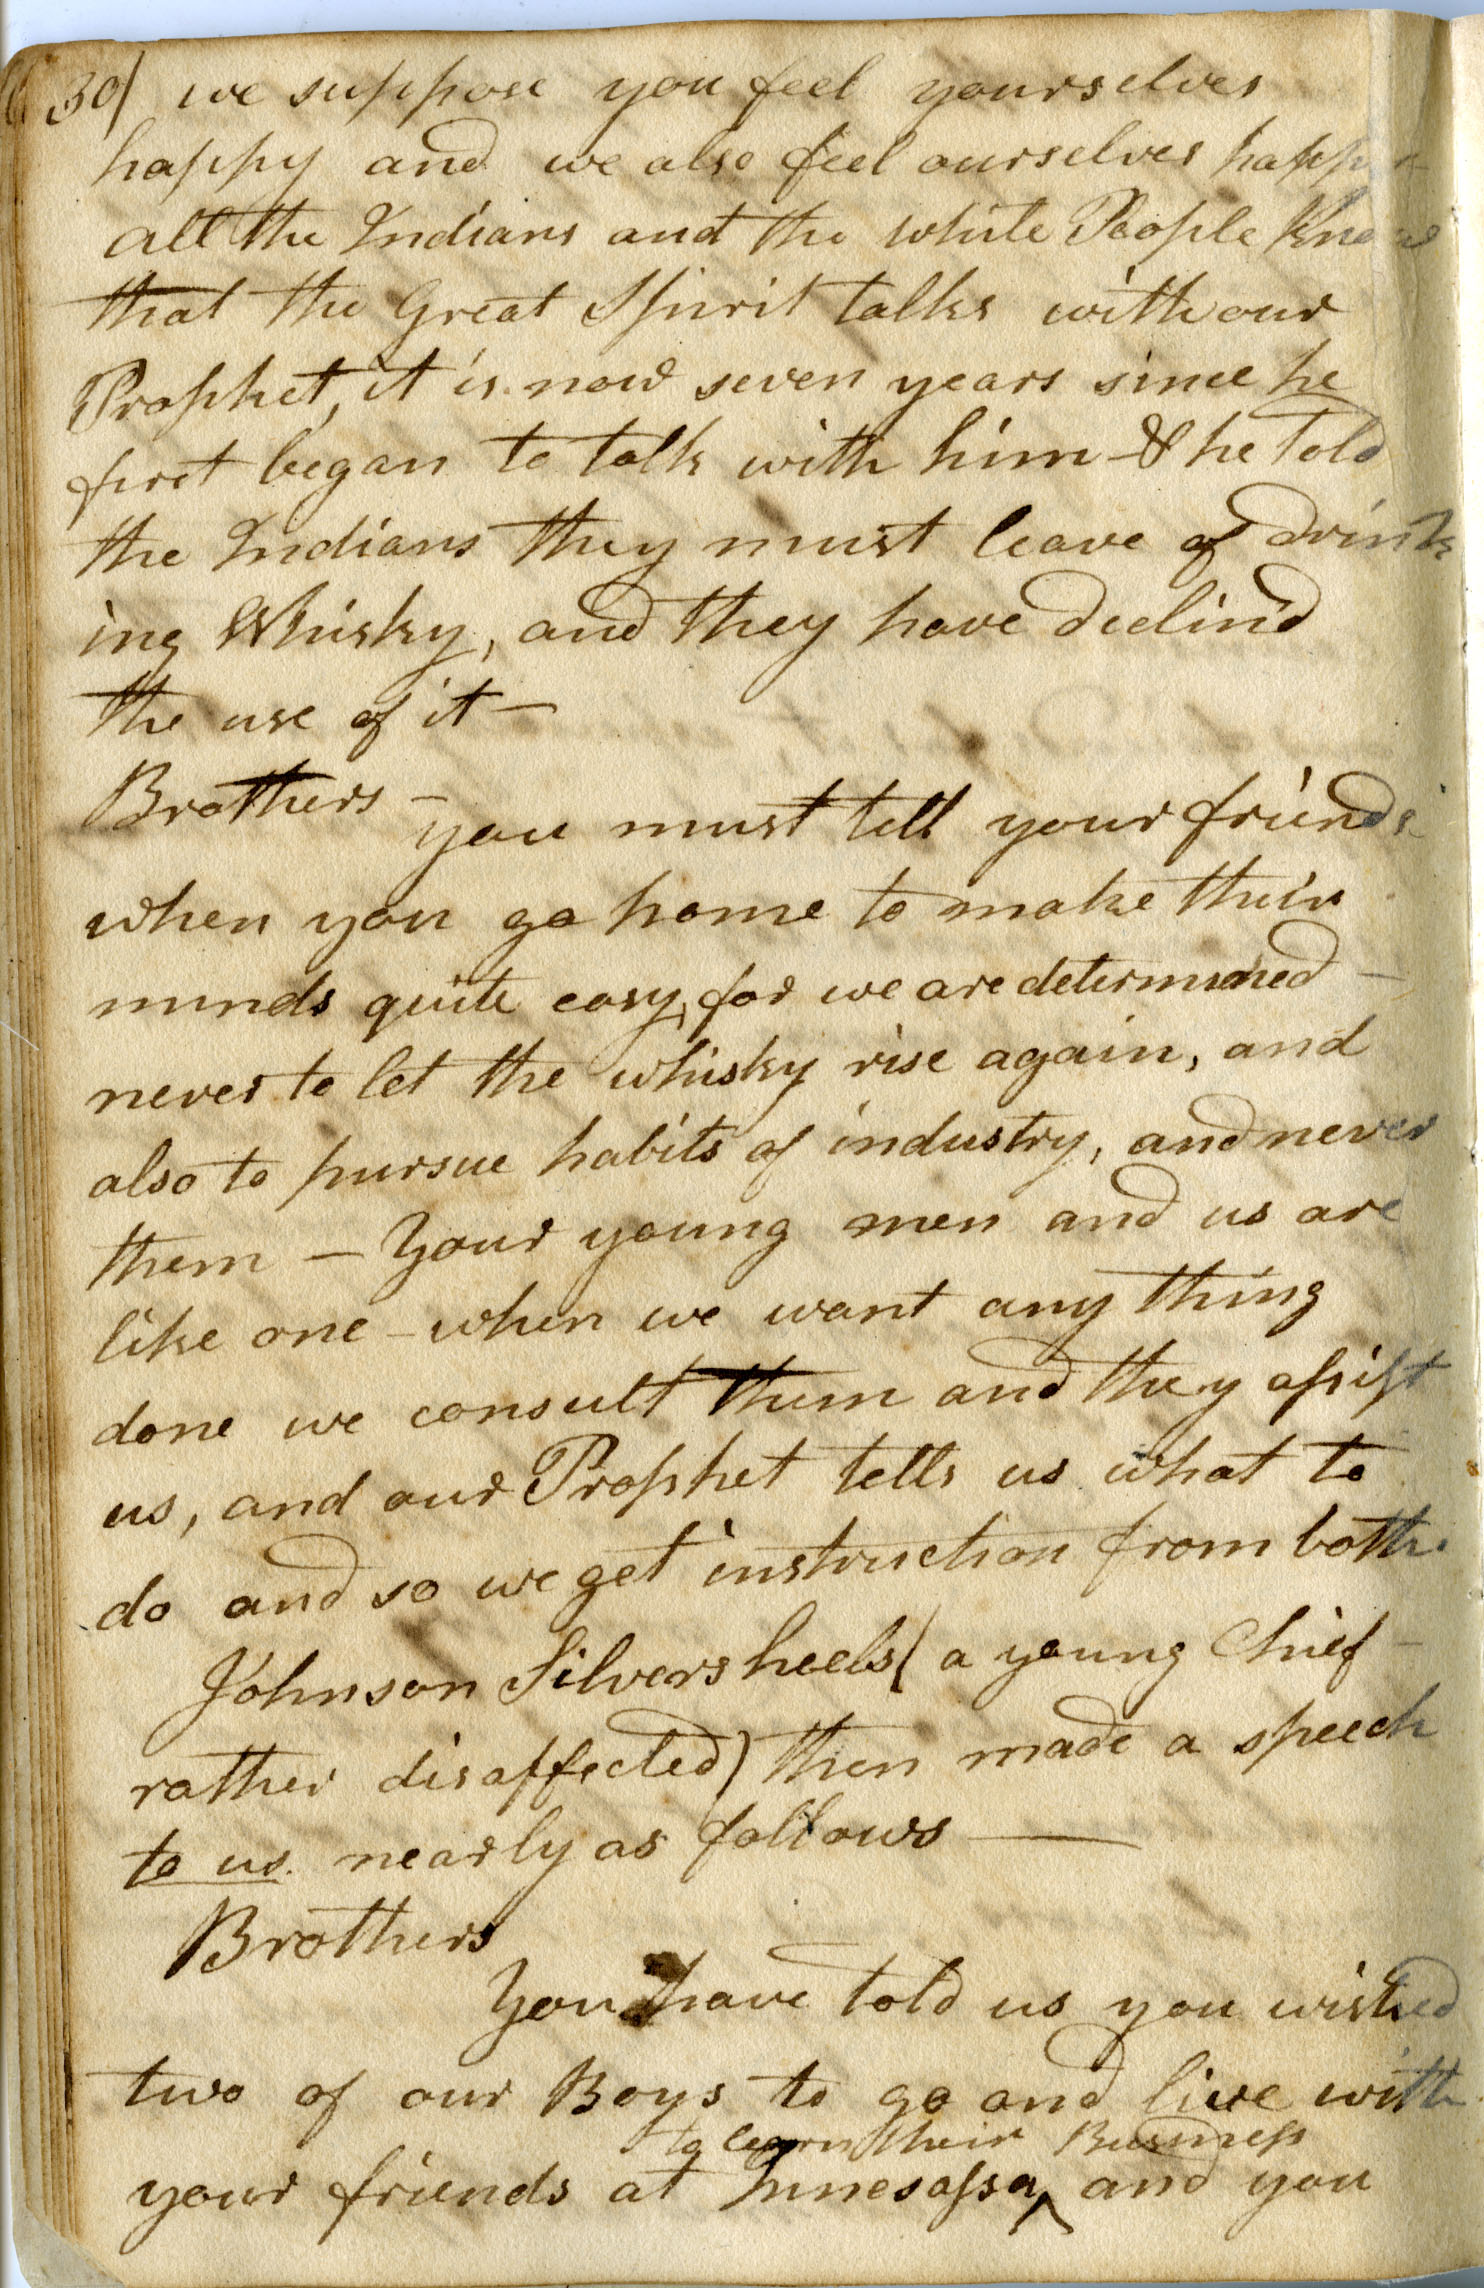 30) we suppose you feel yourselves
happy and we also feel ourselves happy
all the Indians and the white People Know
that the Great Spirit talks with our
Prophet, it is now seven years since he
first began to talk with him & he told
the Indians they must leave of drink
ing Whisky, and they have declin'd
the use of it —
Brothers —
you must tell your friends
when you go home to make their
minds quite easy, for we are determined —
never to let the whisky rise again, and
also to pursue habits of industry, and never
them — Your young men and us are
like one — when we want any thing
done we consult them and they assist
us, and our Prophet tells us what to
do and so we get instruction from both.
Johnson Silversheels (a young Chief —
rather disaffected) then made a speech
to us nearly as follows —
Brothers
You have told us you wished
two of our Boys to go and live with
to learn their Business
your friends at Tunesassa ^ and you